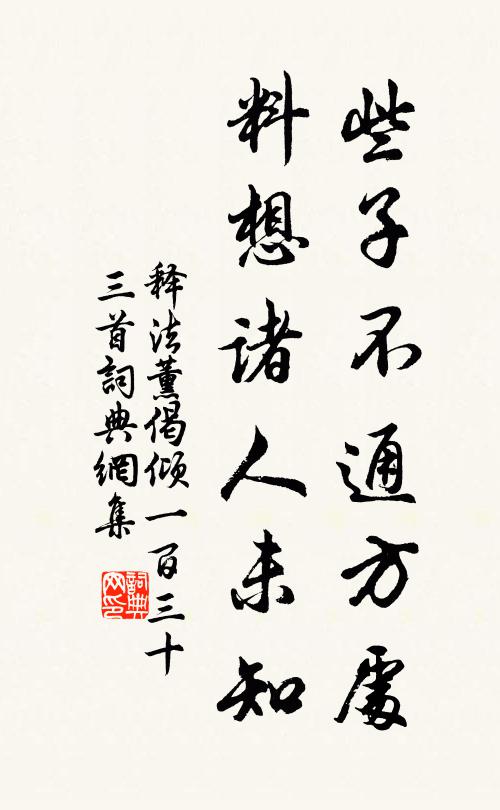 些子不通方處
料想諸人未知
释法薰偈倾一百三十
三首詞典網集
詞典网印